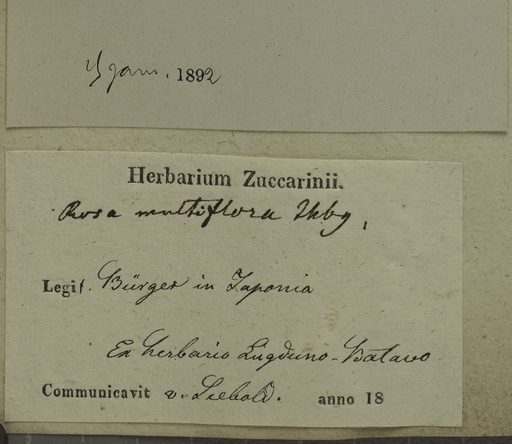 Jan. 1892
Herbarium Zuccarinii.
Rosa multiflora Thbg,
Legit. Bürger in Japonia
Ex herbario Lugduno-Batavo
Communicavit v. Siebold. anno 18